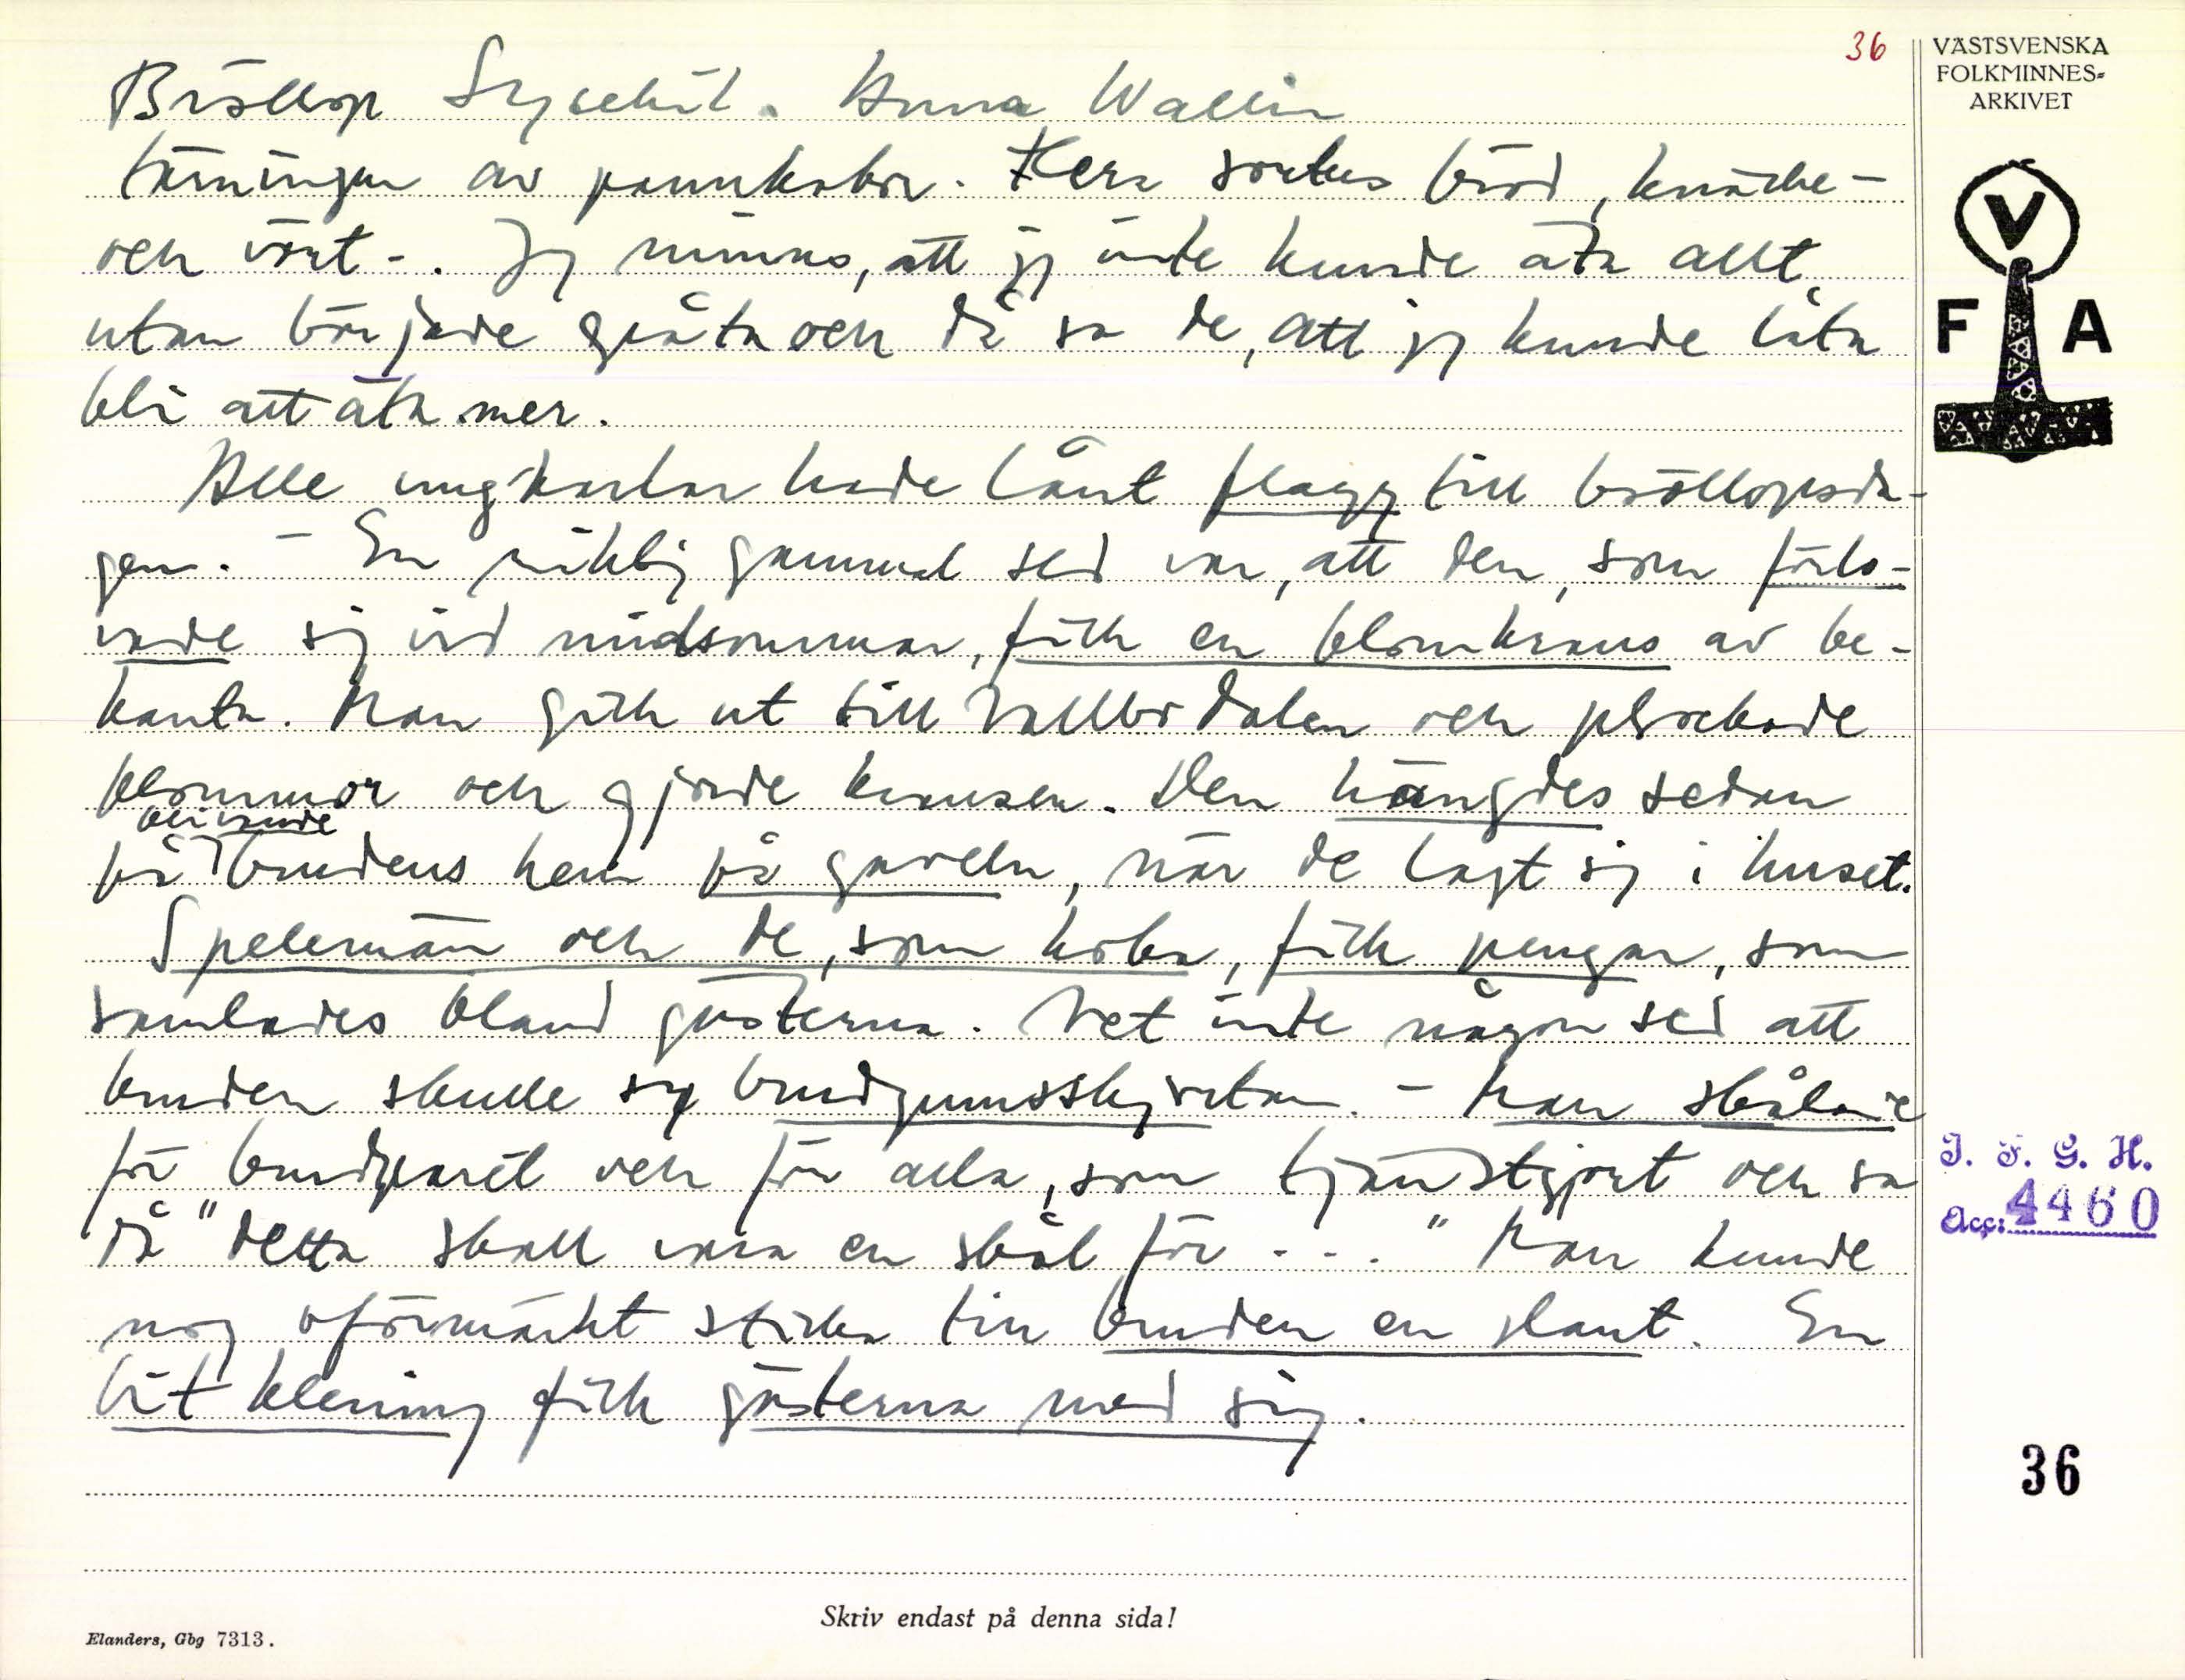 36
VÄSTSVENSKA
FOLKMINNES-
ARKIVET
Bröllop Lysekil. Anna Wallin
tärningar av pannkakor. Flera sorters bröd, knäcke-
och vört-. Jag minns, att jag inte kunde äta allt,
utan började gråta och då sa de, att jag kunde låta
bli att äta mer.
Alla ungkarlar hade lånt flagg till bröllopsda-
gen. - En riktig gammal sed var, att den, som förlo-
vade sig vid midsommar, fick en blomkrans av be-
kanta. Man gick ut till Vallbodalen och plockade
blommor och gjorde kransen. Den hängdes sedan
blivande
på brudens hem på gaveln, när de lagt sig i huset.
Spelemän och de, som koka, fick pengar, som
samlades bland gästerna. Vet inte någon sed att
bruden skulle sy brudgumsskjortan. - Man skålade
för brudparet och för alla, som tjänstgjort och sa
då "detta skall vara en skål för ..." Man kunde
nog oförmärkt sticka till bruden en slant. En
bit klening fick gästerna med sig.
V
F A
I. F. G. H.
Acc: 4460
36
Skriv endast på denna sida!
Elanders, Gbg 7313.